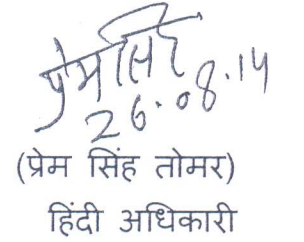 प्रेम सिंह
26.08.14
(प्रेम सिंह तोमर)
हिंदी अधिकारी